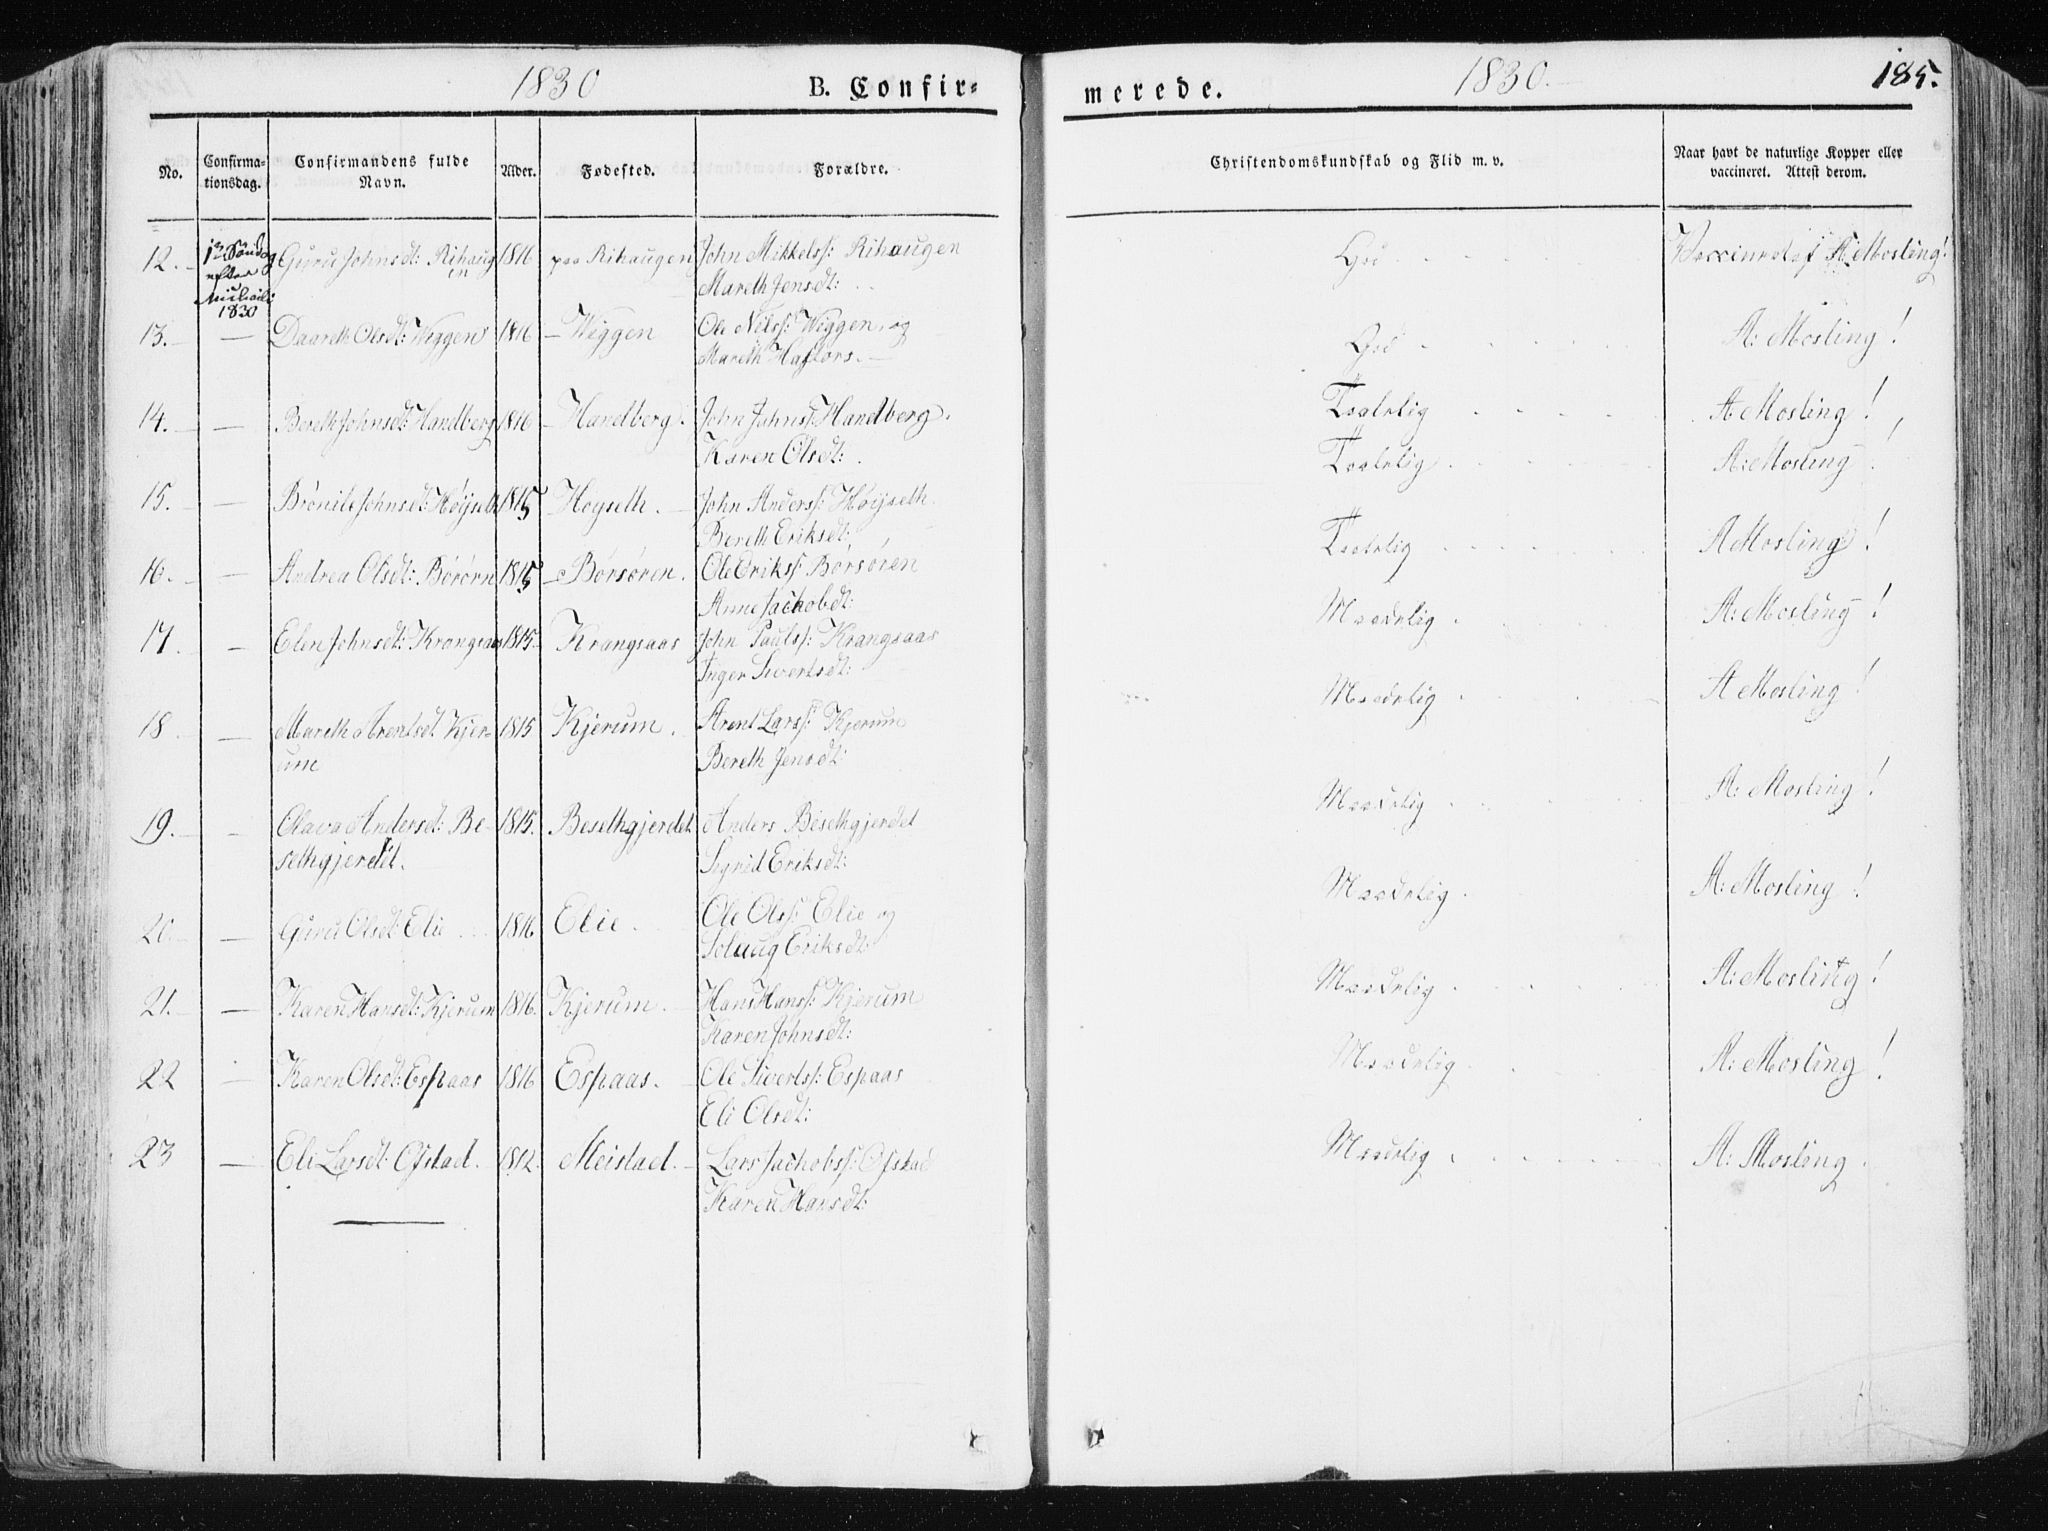 1830
B. Confir-
merede.
1830.
185.
No.
Confirma-
tionsdag.
Confirmandens fulde
Navn.
Alder.
Fødested.
Forældre.
Christendomskundskab og Flid m. v.
Naar havt de naturlige Kopper eller
vaccineret. Attest derom.
12. Søndag Guru Johnsdt: Rihaug 1816 paa Rihaugen John Mikkelss: Rihaugen God Vaccineret af A: Mosling!
efter en Mareth Jensdt:
Michaeli
1830
13. — Daareth Olsdt: Wiggen 1816 — Wiggen Ole Nilss: Wiggen, og God A: Mosling!
Mareth Haflors. —
14. — Bereth Johnsdt: Handberg 1816 — Handberg. John Johnss: Handberg. Taalelig A Mosling!
Karen Olsdt: Taalelig A: Mosling!
15. — Brønile Johnsdt: Høijseth 1815 — Hoyseth. — John Anderss: Høijseth.
Bereth Eriksdt: Taalelig A Mosling!
16. — Andrea Olsdt: Børørn 1815 — Børsøren. Ole Erikss: Børsøren
Anne Jachobdt: Maadelig A: Mosling!
17. — Elen Johnsdt: Krangsaas 1815. Krangsaas John Paulss: Krangsaas
Inger Sivertsdt: Maadelig A Mosling!
18 — Mareth Arentsdt Kjer- 1815 Kjerum. Arent Larss: Kjerum
um Bereth Jensdt: Maadelig A: Mosling!
19. — Olava Andersdt: Be- 1815. Besethgjerdet Anders Besethgjerdet
sethgjerdet. Sigrid Eriksdt: Maadelig A: Mosling!
20. — Guru Olsdt: Elie 1816 Elie. Ole Olss: Elie og
Solaug Eriksdt: Maadelig A: Mosling!
21. — Karen Hansdt: Kjerum 1816. Kjerum. — Hans Hanss: Kjerum
Karen Johnsdt: Maadelig A: Mosling!
22 — Karen Olsdt: Espaas 1816 Espaas. — Ole Sivertss: Espaas
Eli Olsdt:
23 — Eli Larsdt: Ofstad. 1812. Meistad. — Lars Jachobss: Ofstad Maadelig A: Mosling.
Karen Hansdt: